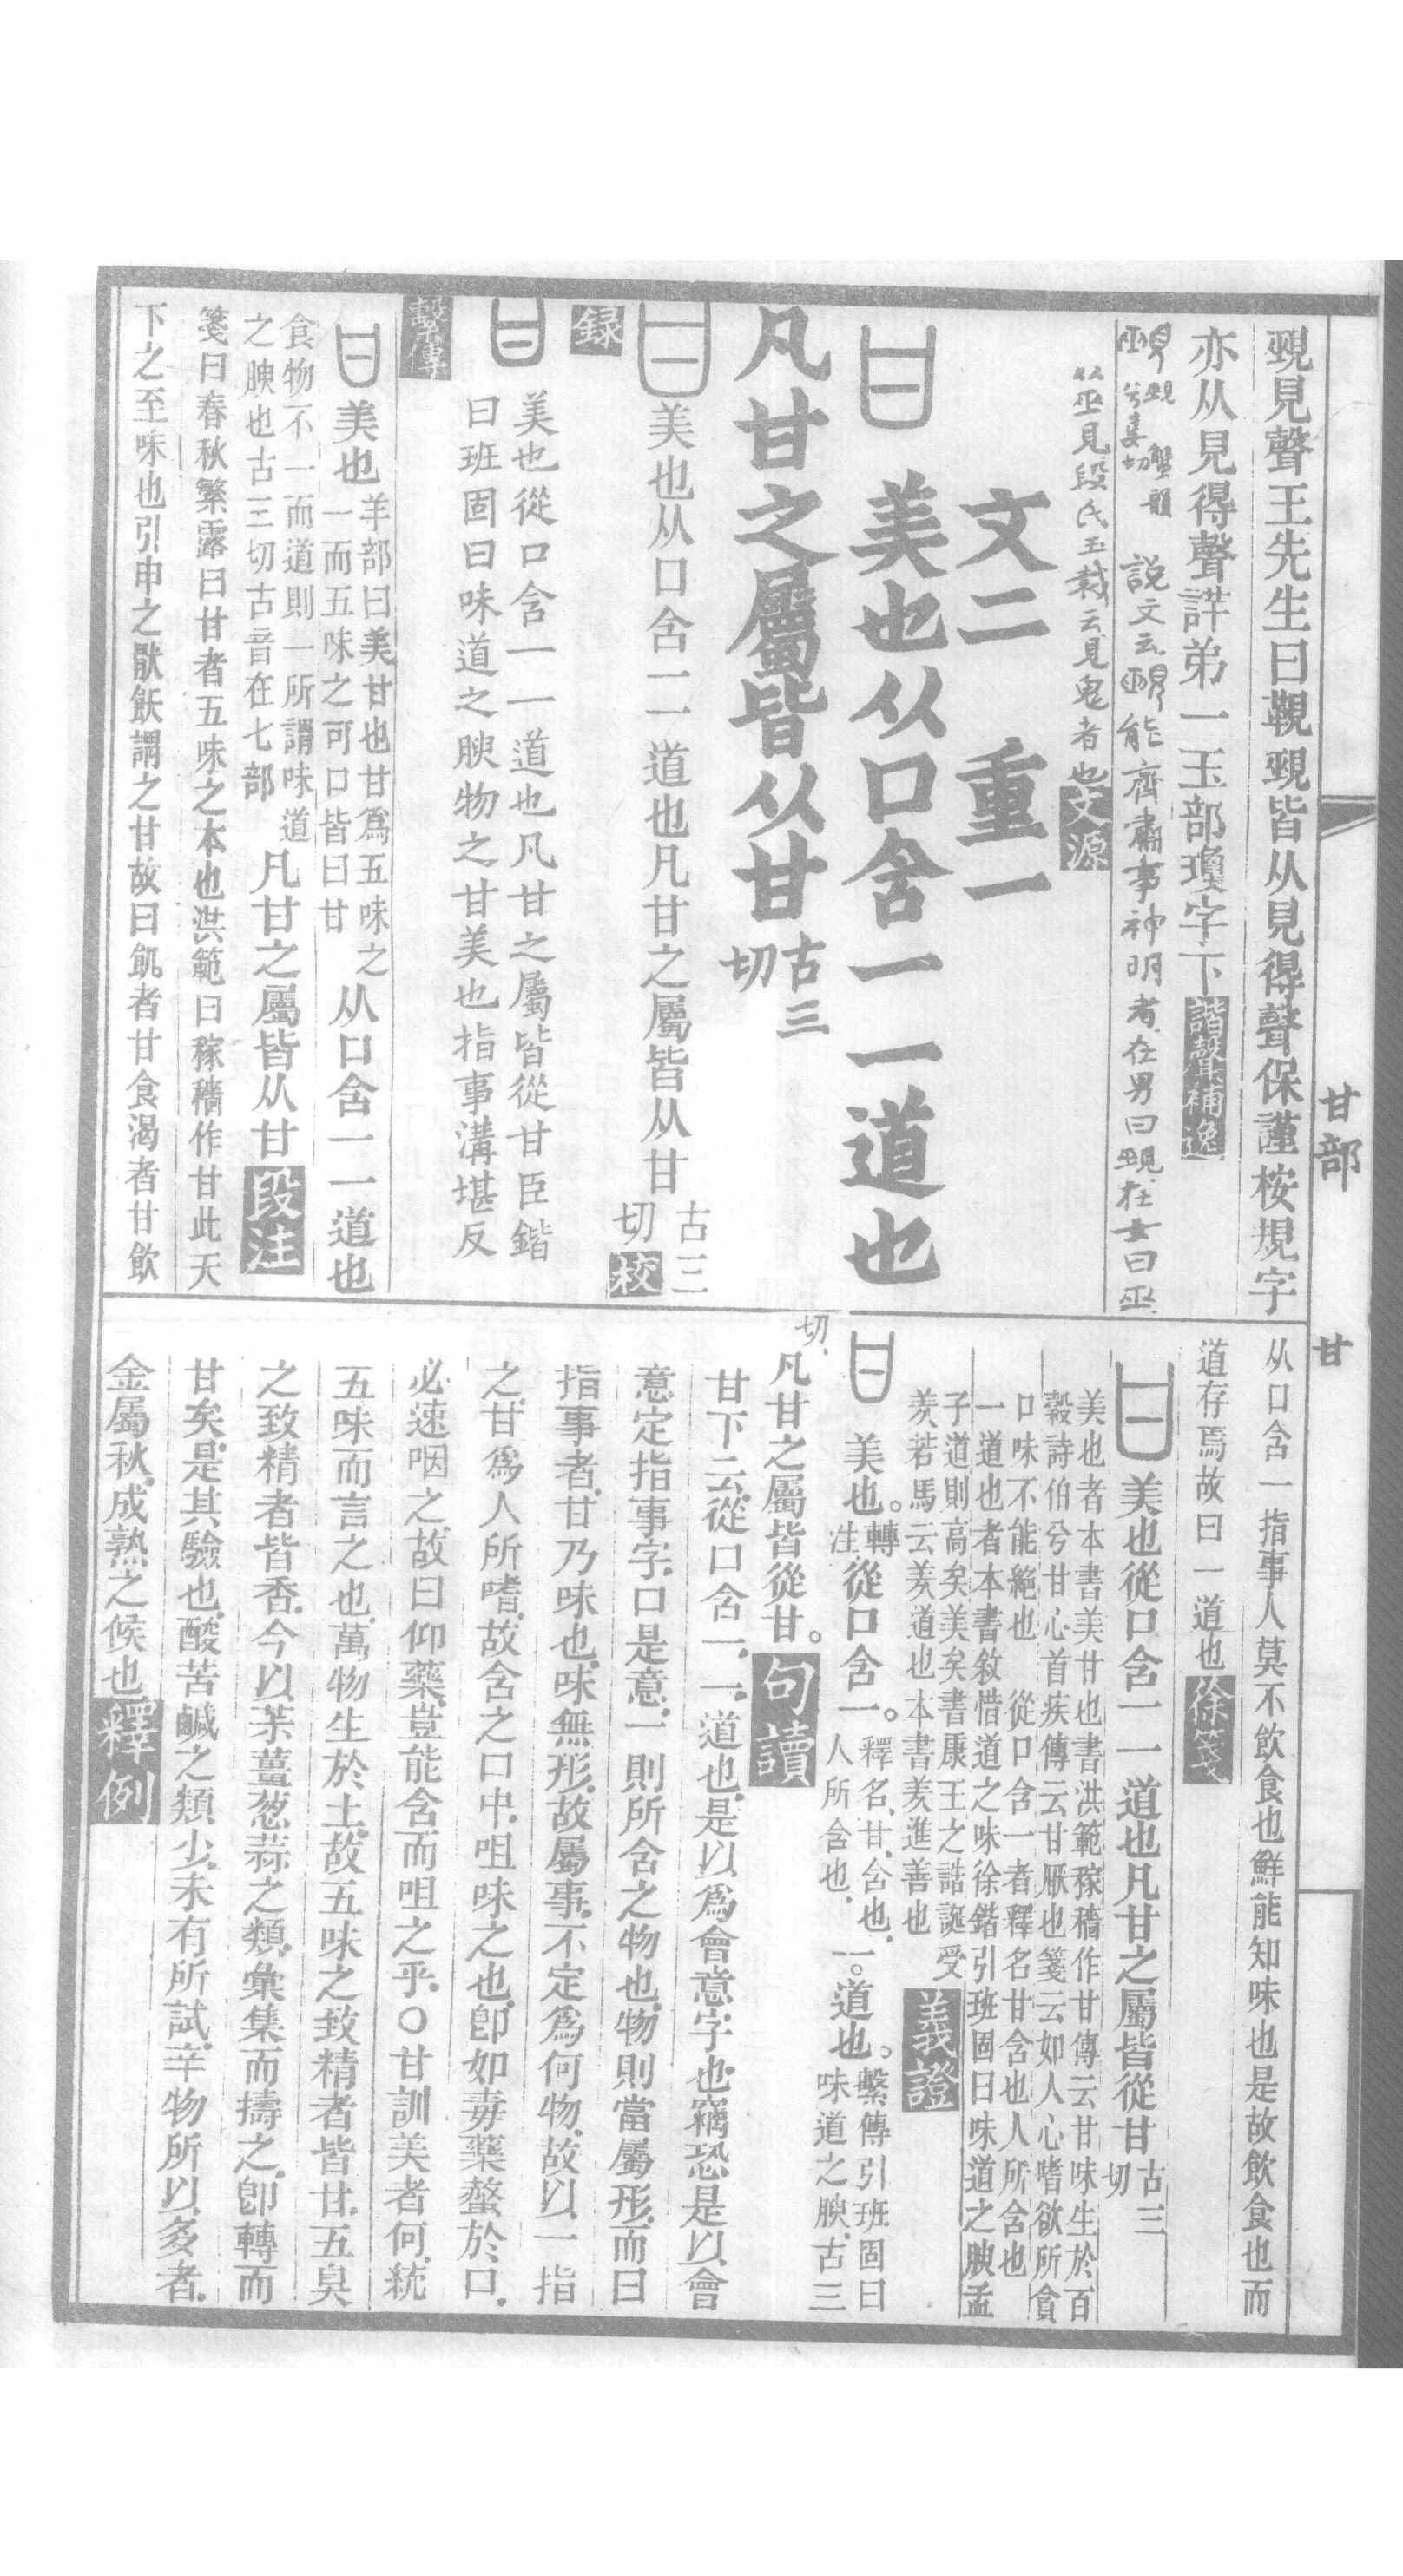 覡見聲王先生曰觀覡皆从見得聲保謹桉規字
亦从見得聲詳弟一玉部瓊字下諧聲補逸
說文云覡能齊肅事神明者在男曰覡在女曰巫
从巫見段氏玉裁云見鬼者也文源
文二　重一
美也从口含一一道也
凡甘之屬皆从甘古三切
美也从口含一一道也凡甘之屬皆从甘古三切校
録
美也從口含一一道也凡甘之屬皆從甘臣鍇
曰班固曰味道之腴物之甘美也指事溝堪反
繫傳
美也羊部曰美甘也甘爲五味之
一而五味之可口皆曰甘从口含一一道也
食物不一而道則一所謂味道
之腴也古三切古音在七部凡甘之屬皆从甘段注
箋曰春秋繁露曰甘者五味之本也洪範曰稼穡作甘此天
下之至味也引申之猒飫謂之甘故曰飢者甘食渴者甘飲
甘部
甘
从口含一指事人莫不飲食也鮮能知味也是故飲食也而
道存焉故曰一道也徐箋
美也從口含一一道也凡甘之屬皆從甘古三切
美也者本書美甘也書洪範稼穡作甘傳云甘味生於百
穀詩伯兮甘心首疾傳云甘厭也箋云如人心嗜欲所貪
口味不能絕也　從口含一者釋名甘含也人所含也
一道也者本書敘惜道之味徐鍇引班固曰味道之腴孟
子道則高矣美矣書康王之誥誕受
羑若馬云羑道也本書羑進善也義證
美也。轉注從口含一。釋名、甘、含也、人所含也、一。道也。繫傳引班固曰味道之腴、古三
切、凡甘之屬皆從甘。句讀
甘下云、從口含一、一、道也、是以爲會意字也、竊恐是以會
意定指事字、口是意、一則所含之物也、物則當屬形、而曰
指事者、甘乃味也、味無形、故屬事、不定爲何物、故以一指
之、甘爲人所嗜、故含之口中、咀味之也、卽如毒藥螫於口、
必速咽之、故曰仰藥、豈能含而咀之乎、○甘訓美者何、統
五味而言之也、萬物生於土、故五味之致精者皆甘、五臭
之致精者皆香、今以茱薑葱蒜之類、彙集而擣之、卽轉而
甘矣、是其驗也、酸苦鹹之類少、未有所試、辛物所以多者、
金屬秋、成熟之候也釋例